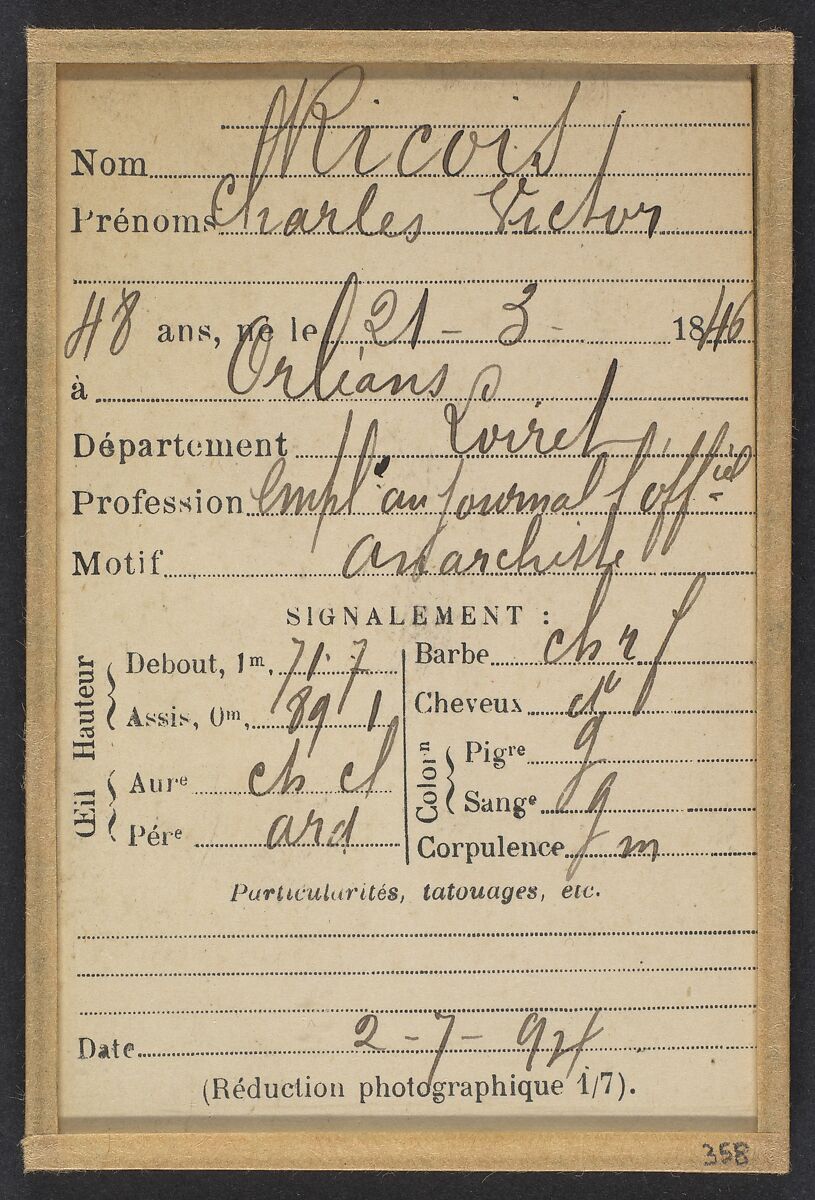 Nom Ricois
Prénoms Charles Victor
48 ans, né le 21 - 3 - 1846
à Orléans
Département Loiret
Profession Empl. au journal l'offiel
Motif anarchiste
SIGNALEMENT :
Hauteur
Debout, 1m, 71.7
Assis, 0m, 89 1
Œil
Aure ch cl
Pére ard
Barbe ch r f
Cheveux do
Colorn
Pigre g
Sange g
Corpulence m
Particularités, tatouages, etc.
Date 2 - 7 - 94
(Réduction photographique 1/7).
358